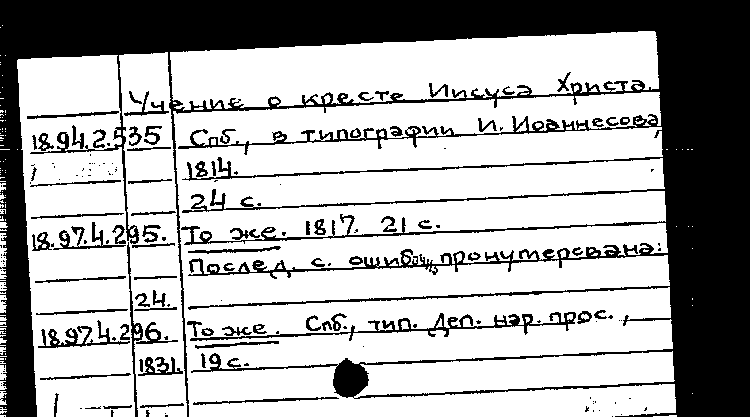 Учение о кресте Иисуса Христа.
18.94.2.535 Спб., в типографии И. Иоаннесова,
1814.
24 с.
18.97.4.295. То же. 1817. 21 с.
Послед. с. ошибочно пронумерована:
24.
18.97.4.296. То же. Спб., тип. Деп. нар. прос.,
1831. 19 с.